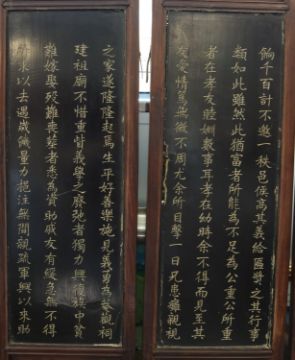 之家遂隆隆起焉生平好善樂施見義勇為家親祠
建祖廟不惜重貲義學之廢弛者獨力興復族中貧
難嫁娶殁難喪葬者悉為資助戚友有緩急無不得
求以去遇歲饑量力挹注無間親疏軍興以來助
餉千百計不邀一秩邑侯高其義給匾獎之其行事
類如此雖然此猶富者所能為不足為公重公所重
者在孝友睦婣數事耳孝在幼時余不得而見至其
友愛情篤無微不周尤余所目擊一日兄患癰親視